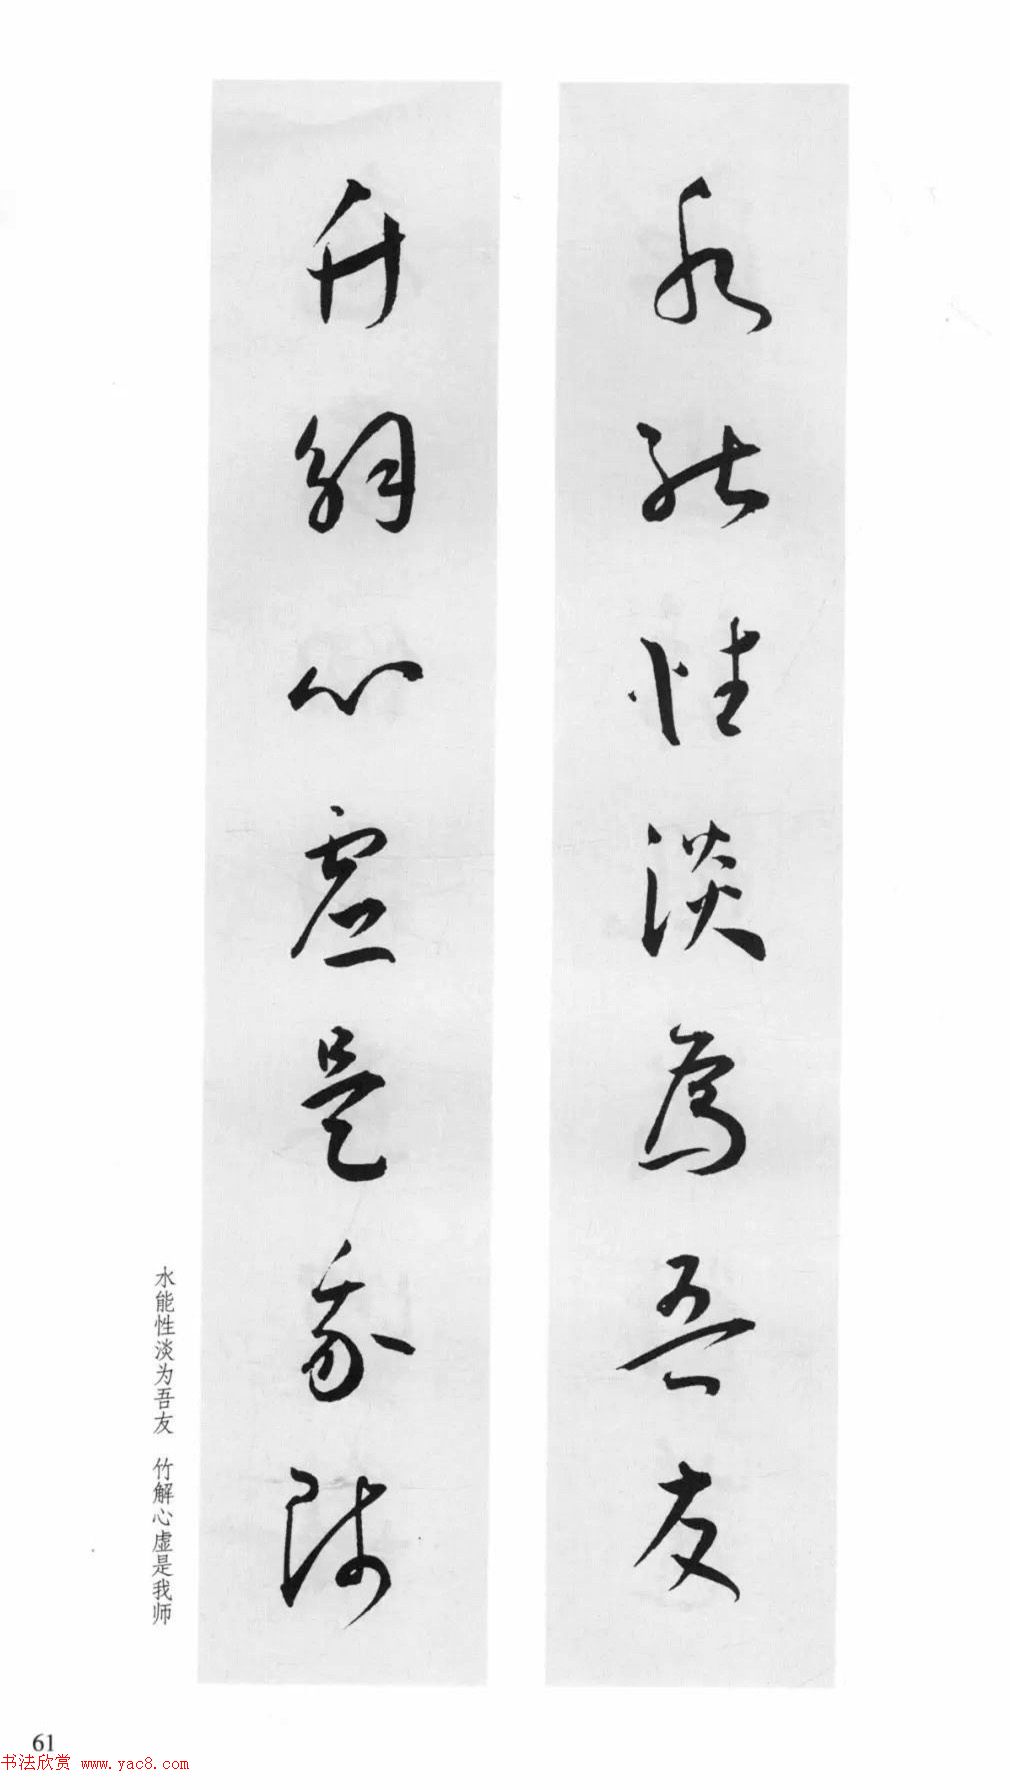 水能性淡為吾友
竹解心虚是我師
水能性淡为吾友 竹解心虚是我师
61
书法欣赏 www.yac8.com